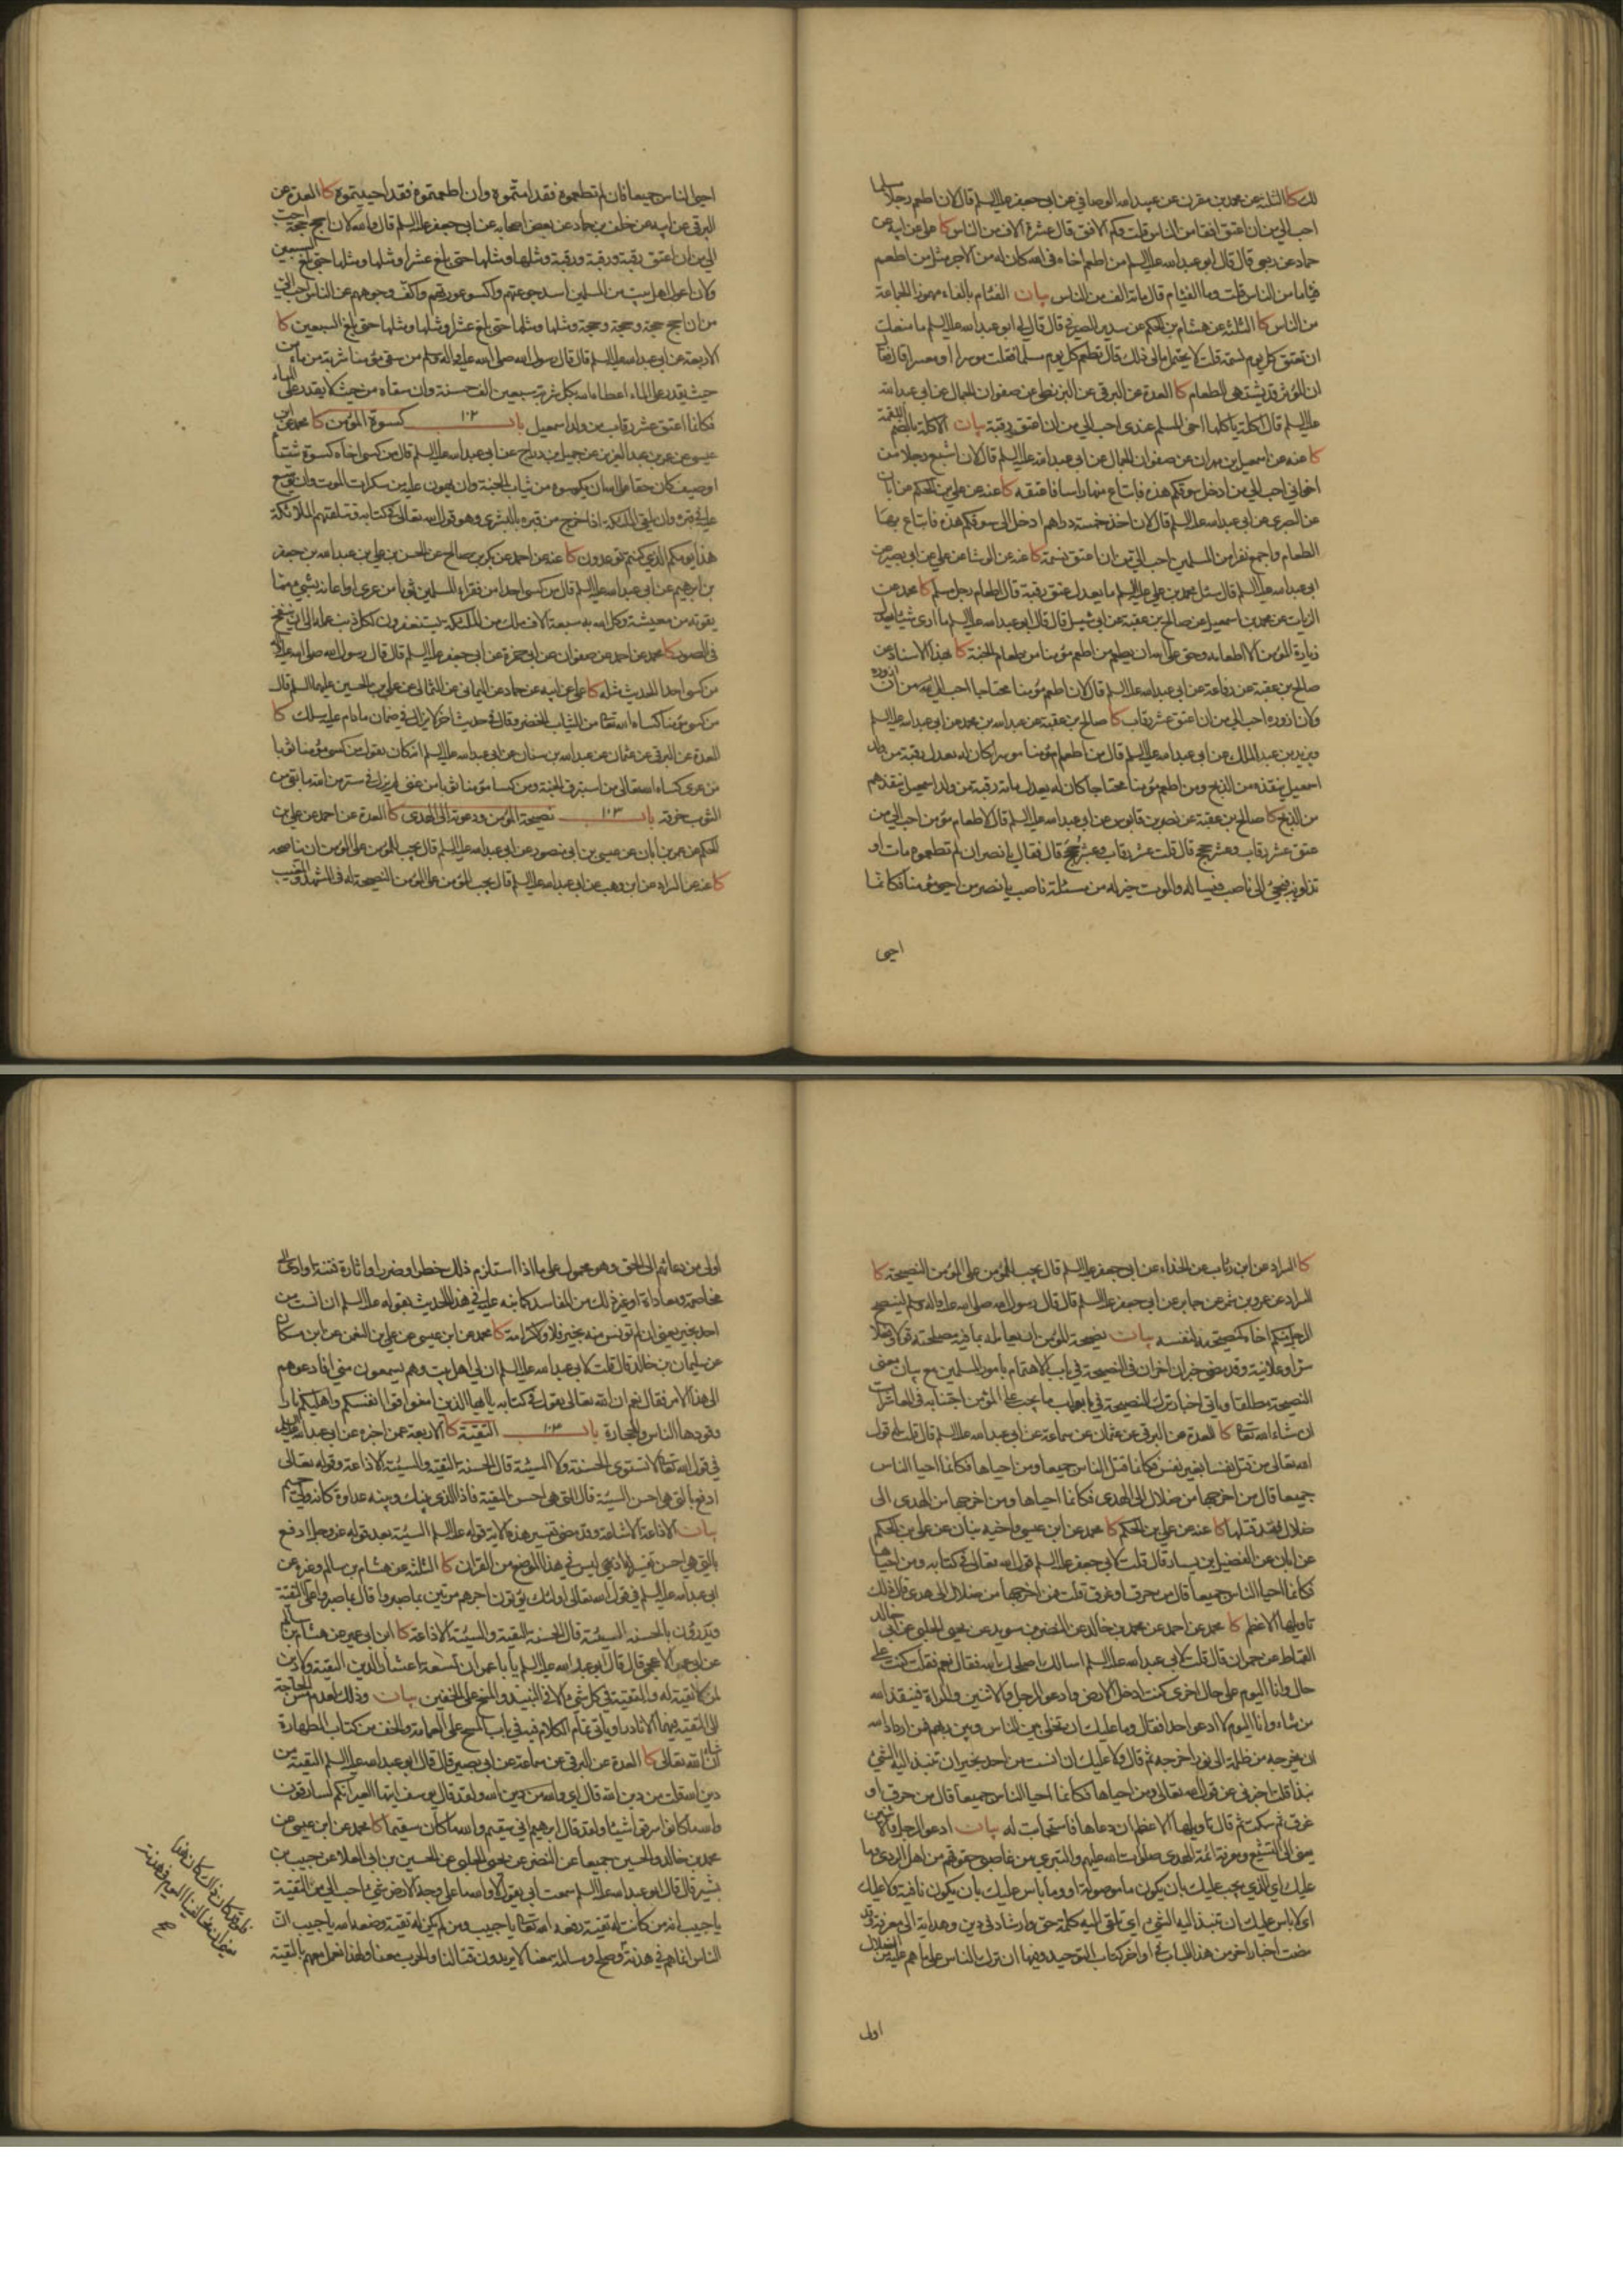 لك كا الثلثة عن محمد بن مقرن عن عبيد الله الوصافي عن ابي جعفر عليه السلم قال لان اطعم رجلا مسلما
احب الي من ان اعتق افقا من الناس قلت وكم الافق قال عشرة آلاف من الناس كا علي عن ابيه عن
حماد عن ربعي قال قال ابو عبد الله عليه السلم من اطعم اخاه في الله كان له من الاجر مثل من اطعم
فئاما من الناس قلت وما الفئام قال مائة الف من الناس بيان الفئام بالفاء مهموزا الجماعة
من الناس كا الثلثة عن هشام بن الحكم عن سدير الصيرفي قال قال لي ابو عبد الله عليه السلم ما منعك
ان تعتق كل يوم نسمة قلت لا يحتمل مالي ذلك قال تطعم كل يوم مسلما فقلت موسرا او معسرا قال فقال
ان الموسر قد يشتهي الطعام كا العدة عن البرقي عن البزنطي عن صفوان الجمال عن ابي عبد الله
عليه السلم قال اكلة ياكلها اخي المسلم عندي احب الي من ان اعتق رقبة بيان الاكلة بالضم اللقمة
كا عنه عن اسمعيل بن مهران عن صفوان الجمال عن ابي عبد الله عليه السلم قال لان اشبع رجلا من
اخواني احب الي من ادخل سوقكم هذه فابتاع منها راسا فاعتقه كا عنه عن علي بن الحكم عن ابان
عن البصري عن ابي عبد الله عليه السلم قال لان اخذ خمسة دراهم ادخل الى سوقكم هذه فابتاع بها
الطعام واجمع نفرا من المسلمين احب الي من ان اعتق نسمة كا عنه عن الوشا عن علي عن ابي بصير عن
ابي عبد الله عليه السلم قال سئل محمد بن علي عليه السلم ما يعدل عتق رقبة قال اطعام رجل مسلم كا محمد عن
الزيات عن محمد بن اسمعيل عن صالح بن عقبة عن ابي شبل قال قال ابو عبد الله عليه السلم ما ارى شيئا يعدل
زيارة المؤمن الا اطعامه وحق على الله ان يطعم من اطعم مؤمنا من طعام الجنة كا بهذا الاسناد عن
صالح بن عقبة عن رفاعة عن ابي عبد الله عليه السلم قال لان اطعم مؤمنا محتاجا احب الي من ان ازوره
ولان ازوره احب الي من ان اعتق عشر رقاب كا صالح بن عقبة عن عبد الله بن محمد عن ابي عبد الله عليه السلم
ويزيد بن عبد الملك عن ابي عبد الله عليه السلم قال من اطعم مؤمنا موسرا كان له يعدل رقبة من ولد
اسمعيل ينقذه من الذبح ومن اطعم مؤمنا محتاجا كان له يعدل مائة رقبة من ولد اسمعيل ينقذهم
من الذبح كا صالح بن عقبة عن نصر بن قابوس عن ابي عبد الله عليه السلم قال لاطعام مؤمن احب الي من
عتق عشر رقاب وعشر حجج قال قلت عشر رقاب وعشر حجج قال فقال يا نصر ان لم تطعموه مات او
تذلونه فيجئ الى ناصب فيساله والموت خير له من مسئلة ناصب يا نصر من احيى مؤمنا فكانما
احيى
احيى الناس جميعا فان لم تطعموه فقد امتموه وان اطعمتموه فقد احييتموه كا العدة عن
البرقي عن ابيه عن خلف بن حماد عن بعض اصحابه عن ابي جعفر عليه السلم قال والله لان احج حجة احب
الي من ان اعتق رقبة ورقبة ورقبة ومثلها ومثلها حتى بلغ عشرا ومثلها ومثلها حتى بلغ السبعين
ولان اعول اهل بيت من المسلمين اسد جوعتهم واكسو عورتهم واكف وجوههم عن الناس احب الي
من ان احج حجة وحجة وحجة ومثلها ومثلها حتى بلغ عشرا ومثلها ومثلها حتى بلغ السبعين كا
الاربعة عن ابي عبد الله عليه السلم قال قال رسول الله صلى الله عليه وآله وسلم من سقى مؤمنا شربة من ماء من
حيث يقدر على الماء اعطاه الله بكل شربة سبعين الف حسنة وان سقاه من حيث لا يقدر على الماء
فكانما اعتق عشر رقاب من ولد اسمعيل باب ١٠٢ كسوة المؤمن كا محمد عن ابن
عيسى عن عمر بن عبد العزيز عن جميل بن دراج عن ابي عبد الله عليه السلم قال من كسى اخاه كسوة شتاء
او صيف كان حقا على الله ان يكسوه من ثياب الجنة وان يهون عليه من سكرات الموت وان يوسع
عليه في قبره وان يلقى الملئكة اذا خرج من قبره بالبشرى وهو قول الله تعالى في كتابه وتتلقاهم الملائكة
هذا يومكم الذي كنتم توعدون كا عنه عن احمد عن بكر بن صالح عن الحسن بن علي بن عبد الله بن جعفر
بن ابرهيم عن ابي عبد الله عليه السلم قال من كسى احدا من فقراء المسلمين ثوبا من عرى او اعانه بشئ مما
يقوته من معيشة وكل الله به سبعة آلاف ملك من الملئكة يستغفرون لكل ذنب عمله الى ان ينفخ
في الصور كا محمد عن احمد عن صفوان عن ابي حمزة عن ابي جعفر عليه السلم قال قال رسول الله صلى الله عليه وآله
من كسى احدا الحديث مثله كا علي عن ابيه عن حماد عن اليماني عن الثمالي عن علي بن الحسين عليهما السلم قال
من كسى مؤمنا كساه الله تعا من الثياب الخضر وقال في حديث اخر لا يزال في ضمان الله ما دام عليه سلك كا
العدة عن البرقي عن عثمان عن عبد الله بن سنان عن ابي عبد الله عليه السلم انه كان يقول من كسى مؤمنا ثوبا
من عرى كساه الله تعالى من استبرق الجنة ومن كسا مؤمنا ثوبا من غنى لم يزل في ستر من الله ما بقي من
الثوب خرقة باب ١٠٣ نصيحة المؤمن ودعوته الى الهدى كا العدة عن احمد عن علي بن
الحكم عن عمر بن ابان عن عيسى بن ابي منصور عن ابي عبد الله عليه السلم قال يجب للمؤمن على المؤمن ان يناصحه
كا عنه عن السراد عن ابن وهب عن ابي عبد الله عليه السلم قال يجب للمؤمن على المؤمن النصيحة له في المشهد والمغيب
كا السراد عن ابن رئاب عن الحذاء عن ابي جعفر عليه السلم قال يجب للمؤمن على المؤمن النصيحة كا
السراد عن عمرو بن شمر عن جابر عن ابي جعفر عليه السلم قال قال رسول الله صلى الله عليه وآله وسلم لينصح
الرجل منكم اخاه كنصيحته لنفسه بيان نصيحة المؤمن ان يعامله بما فيه مصلحته قولا وفعلا
سرا وعلانية وقد مضى خبران اخران في النصيحة في باب الاهتمام بامور المسلمين مع بيان معنى
النصيحة مطلقا وياتي اخبار ترك النصيحة في ابواب ما يجب على المؤمن اجتنابه في المعاشرات
ان شاء الله تعا كا العدة عن البرقي عن عثمان عن سماعة عن ابي عبد الله عليه السلم قال قلت له قول
الله تعالى من قتل نفسا بغير نفس فكانما قتل الناس جميعا ومن احياها فكانما احيا الناس
جميعا قال من اخرجها من ضلال الى هدى فكانما احياها ومن اخرجها من هدى الى
ضلال فقد قتلها كا عنه عن علي بن الحكم كا محمد عن ابن عيسى واخيه بنان عن علي بن الحكم
عن ابان عن الفضيل بن يسار قال قلت لابي جعفر عليه السلم قول الله تعالى في كتابه ومن احياها
فكانما احيا الناس جميعا قال من حرق او غرق قلت فمن اخرجها من ضلال الى هدى قال ذلك
تاويلها الاعظم كا محمد عن احمد عن محمد بن خالد عن النضر بن سويد عن يحيى الحلبي عن ابي خالد
القماط عن حمران قال قلت لابي عبد الله عليه السلم اسالك اصلحك الله فقال نعم فقلت كنت على
حال وانا اليوم على حال اخرى كنت ادخل الارض فادعو الرجل والاثنين والمراة فينقذ الله
من شاء وانا اليوم لا ادعو احدا فقال وما عليك ان تخلي بين الناس وبين ربهم فمن اراد الله
ان يخرجه من ظلمة الى نور اخرجه ثم قال ولا عليك ان انست من احد خيرا ان تنبذ اليه الشئ
نبذا قلت اخبرني عن قول الله تعالى ومن احياها فكانما احيا الناس جميعا قال من حرق او
غرق ثم سكت ثم قال تاويلها الاعظم ان دعاها فاستجابت له بيان ادعو الرجل والاثنين
يعنى الى التشيع ومعرفة ائمة الهدى صلوات الله عليهم والتبري من غاصبي حقوقهم من اهل الردى وما
عليك اي الذي يجب عليك بان يكون ما موصولة او وما باس عليك بان يكون نافية ولا عليك
اي لا باس عليك ان تنبذ اليه الشئ اي تلقي اليه كلمة حق وارشاد في دين وهداية الى معرفة وقد
مضت اخبار اخر من هذا الباب في اواخر كتاب التوحيد وفيها ان ترك الناس على ما هم عليه من الضلال
اولى
اولى من دعائهم الى الحق وهو محمول على ما اذا استلزم ذلك خطرا وضررا واثارة فتنة او ادى الى
مخاصمة ومعاداة او غير ذلك من المفاسد كما نبه عليه في هذا الحديث بقوله عليه السلم ان انست من
احد بخير يعنى ان لم تونس منه بخير فلا ولا كرامة كا محمد عن ابن عيسى عن علي بن النعمن عن ابن مسكان
عن سليمان بن خالد قال قلت لابي عبد الله عليه السلم ان لي اهل بيت وهم يسمعون مني افادعوهم
الى هذا الامر فقال نعم ان الله تعالى يقول في كتابه يا ايها الذين امنوا قوا انفسكم واهليكم نارا
وقودها الناس والحجارة باب ١٠٤ التقية كا الاربعة عمن اخبره عن ابي عبد الله عليه السلم
في قول الله تعا لا تستوى الحسنة ولا السيئة قال الحسنة التقية والسيئة الاذاعة وقوله تعالى
ادفع بالتي هي احسن السيئة قال التي هي احسن التقية فاذا الذي بينك وبينه عداوة كانه ولي حميم
بيان الاذاعة الاشاعة وقد مضى تفسير هذه الاية قوله عليه السلم السيئة بعد قوله عز وجل ادفع
بالتي هي احسن تفسير له اذ هي ليس في هذا الموضع من القران كا الثلثة عن هشام بن سالم وغيره عن
ابي عبد الله عليه السلم في قول الله تعالى اولئك يؤتون اجرهم مرتين بما صبروا قال بما صبروا على التقية
ويدرؤن بالحسنة السيئة قال الحسنة التقية والسيئة الاذاعة كا ابن ابي عمير عن هشام بن سالم
عن ابي عمر الاعجمي قال قال ابو عبد الله عليه السلم يا با عمر ان تسعة اعشار الدين التقية ولا دين
لمن لا تقية له والتقية في كل شئ الا في النبيذ والمسح على الخفين بيان وذلك لعدم مس الحاجة
الى التقية فيهما الا نادرا وياتي تمام الكلام فيه في باب المسح على العمامة والخف من كتاب الطهارة
ان شاء الله تعالى كا العدة عن البرقي عن سماعة عن ابي بصير قال قال ابو عبد الله عليه السلم التقية من
دين الله قلت من دين الله قال اي والله من دين الله ولقد قال يوسف ايتها العير انكم لسارقون
والله ما كانوا سرقوا شيئا ولقد قال ابرهيم اني سقيم والله ما كان سقيما كا محمد عن ابن عيسى عن
محمد بن خالد والحسين جميعا عن النضر عن يحيى الحلبي عن الحسين بن ابي العلا عن حبيب بن
بشير قال قال ابو عبد الله عليه السلم سمعت ابي يقول لا والله ما على وجه الارض شئ احب الي من التقية
يا حبيب انه من كانت له تقية رفعه الله تعا يا حبيب ومن لم يكن له تقية وضعه الله يا حبيب ان
الناس انما هم في هدنة وصلح ومسالمة معنا لا يريدون قتالنا والحرب معنا ولهذا نعمل معهم بالتقية